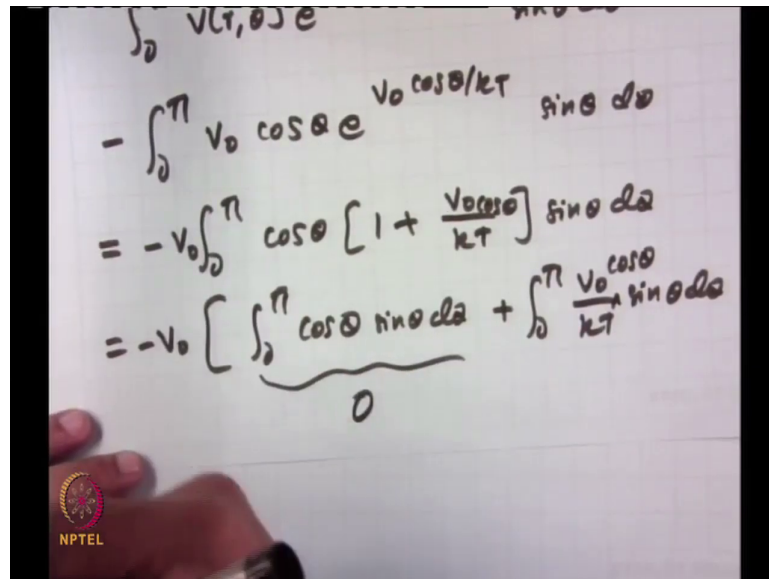 ∫₀^π V(r,θ) e sinθ dθ
- ∫₀^π V₀ cosθ e^(V₀ cosθ/kT) sinθ dθ
= -V₀ ∫₀^π cosθ [1 + V₀cosθ/kT] sinθ dθ
= -V₀ [ ∫₀^π cosθ sinθ dθ + ∫₀^π V₀ cosθ/kT sinθ dθ
0
NPTEL